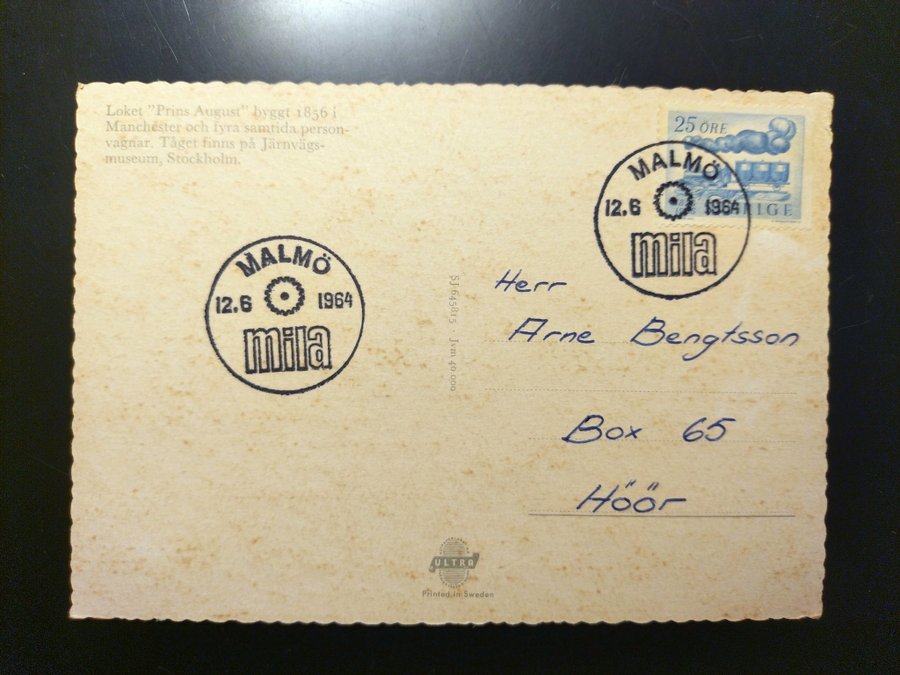 Loket "Prins August" byggt 1856 i
Manchester och fyra samtida person-
vagnar. Tåget finns på Järnvägs-
museum, Stockholm.
25 ÖRE
SVERIGE
MALMÖ
12.6 1964
mila
MALMÖ
12.6 1964
mila
SJ 645815 · Jvm 40.000
Herr
Arne Bengtsson
Box 65
Höör
ULTRA
Printed in Sweden